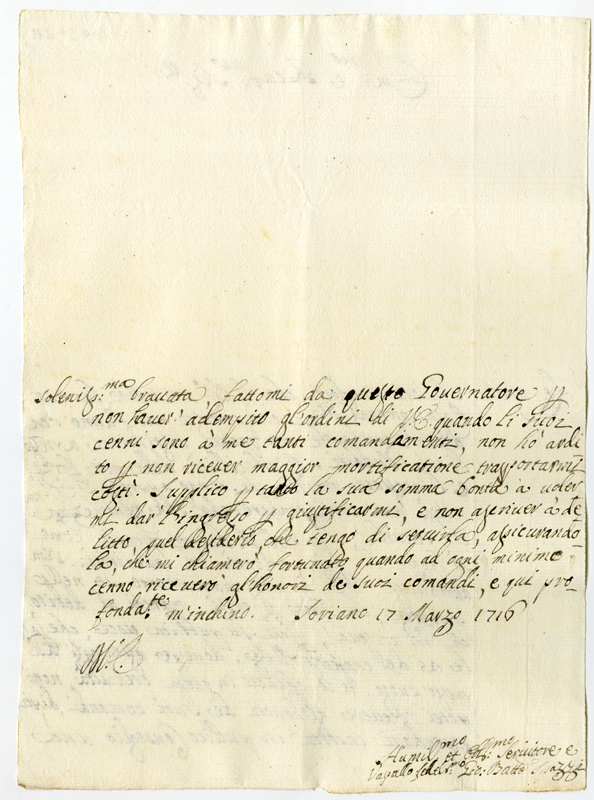 Soleniss:ma bravata, fattomi da questo Governatore p
non haver' adempito gl'ordini di V.E. quando li Suoi
cenni sono à me tanti comandamenti, non hò ardi
to p non ricever maggior mortificatione trasportarmi
costì. Supplico p tanto la sua somma bontà à voler
mi dar' l'ingresso p giustificarmi, e non ascriver à de
litto, quel desiderio che tengo di servirla, assicurando-
la, che mi chiamerò fortunato quando ad ogni minimo
cenno riceverò gl'honori de Suoi comandi, e qui pro-
fonda:te m'inchino. Soriano 17 Marzo 1716
V.E.
Humil:mo et Obb:mo Servitore e
Vasallo fedel:mo Gio: Batta